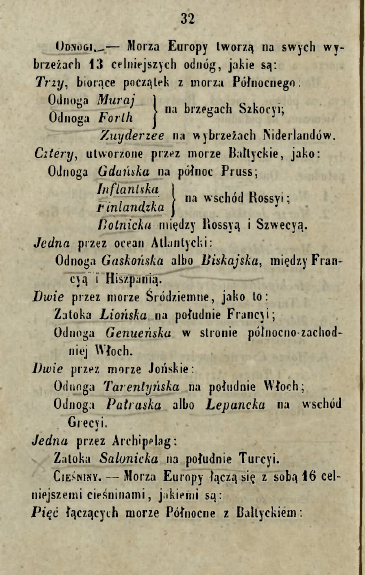 32
ODNOGI. — Morza Europy tworzą na swych wy-
brzeżach 13 celniejszych odnóg, jakie są:
Trzy, biorące początek z morza Północnego:
Odnoga Muraj
Odnoga Forth } na brzegach Szkocyi;
Zuyderzee na wybrzeżach Niderlandów.
Cztery, utworzone przez morze Bałtyckie, jako:
Odnoga Gdańska na północ Pruss;
Inflantska
Finlandzka } na wschód Rossyi;
Botnicka między Rossyą i Szwecyą.
Jedna przez ocean Atlantycki:
Odnoga Gaskońska albo Biskajska, między Fran-
cyą i Hiszpanią.
Dwie przez morze Śródziemne, jako to:
Zatoka Liońska na południe Francyi;
Odnoga Genueńska w stronie północno-zachod-
niej Włoch.
Dwie przez morze Jońskie:
Odnoga Tarentyńska na południe Włoch;
Odnoga Patraska albo Lepancka na wschód
Grecyi.
Jedna przez Archipelag:
Zatoka Salonicka na południe Turcyi.
CIEŚNINY. — Morza Europy łączą się z sobą 16 cel-
niejszemi cieśninami, jakiemi są:
Pięć łączących morze Północne z Bałtyckiem: